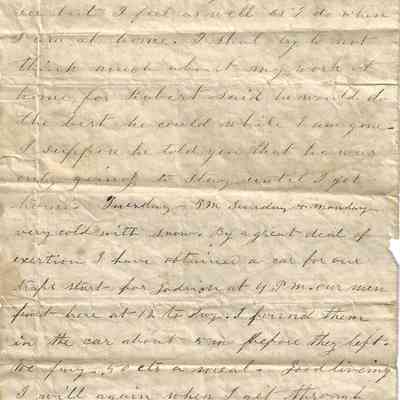 but I feel as well as I do when
I am at home. I shal try to not
think much about my work at
home for Robert said he would do
the best he could while I am gone.
I suppose he told you that he was
only going to stay until I got
home. Tuesday P.M. Sunday & Monday
very cold with snow. By a great deal of
exertion I have obtained a car for our
traps start for at 4 P.M. our men
here at 12 to day. I found them
in the car about 5 m before they left.
we pay .50 cts a meal. Good living
I will again when I get through